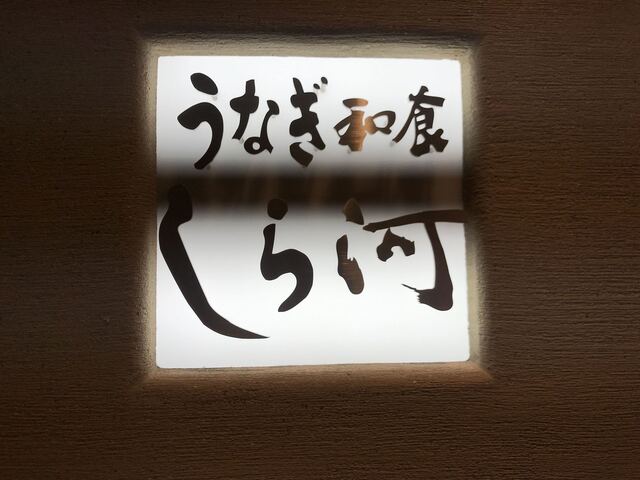 うなぎ和食
しら河